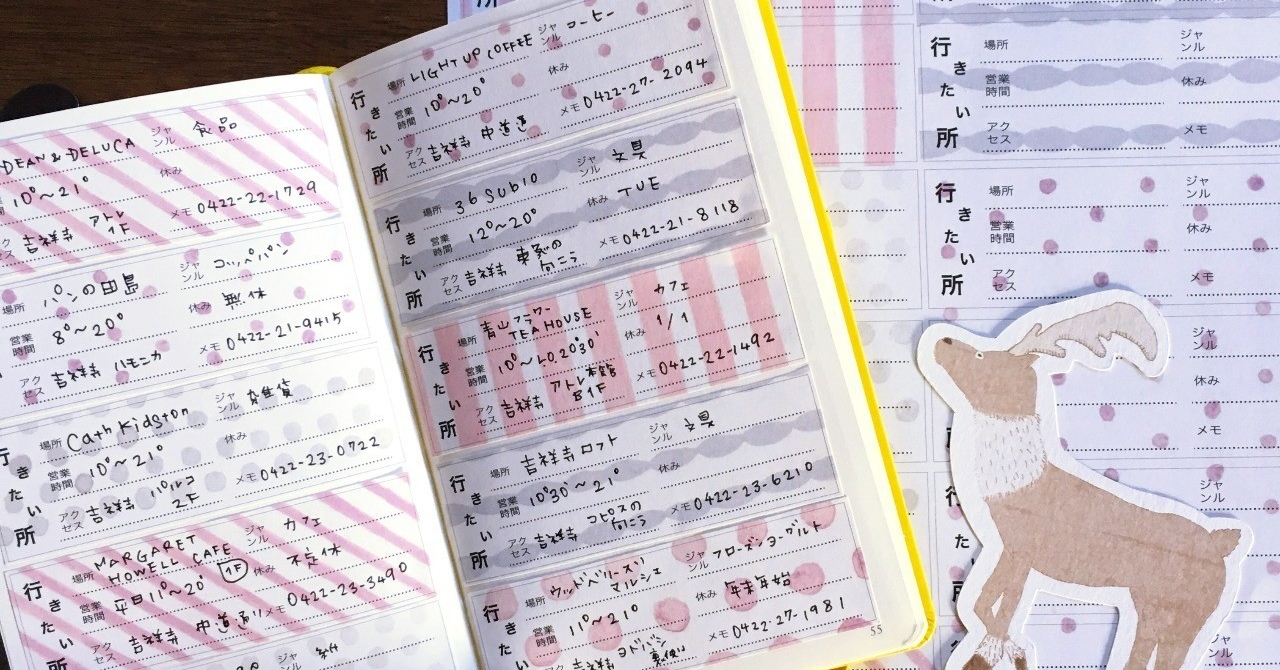 DEAN & DELUCA
ジャンル 食品
10⁰〜21⁰
休み
アクセス 吉祥寺 アトレ 1F
メモ 0422-22-1729
場所 パンの田島
ジャンル コッペパン
営業時間 8⁰〜20⁰
休み 無休
アクセス 吉祥寺 ハモニカ
メモ 0422-21-9415
行きたい所
場所 Cath Kidston
ジャンル 雑貨
営業時間 10⁰〜21⁰
休み
アクセス 吉祥寺 パルコ 2F
メモ 0422-23-0722
行きたい所
場所 MARGARET HOWELL CAFE
ジャンル カフェ
営業時間 平日11⁰〜20⁰ 1F
休み 不定休
アクセス 吉祥寺 中道通り
メモ 0422-23-3490
行きたい所
場所 LIGHT UP COFFEE
ジャンル コーヒー
営業時間 10⁰〜20⁰
休み
アクセス 吉祥寺 中道通
メモ 0422-27-2094
行きたい所
場所 36 Sublo
ジャンル 文具
営業時間 12⁰〜20⁰
休み TUE
アクセス 吉祥寺 東急の向こう
メモ 0422-21-8118
行きたい所
場所 青山フラワー TEA HOUSE
ジャンル カフェ
営業時間 10⁰〜LO.20³⁰
休み 1/1
アクセス 吉祥寺 アトレ本館 B1F
メモ 0422-22-1492
行きたい所
場所 吉祥寺ロフト
ジャンル 文具
営業時間 10³⁰〜21⁰
休み
アクセス 吉祥寺 コピスの向こう
メモ 0422-23-6210
行きたい
場所 ウッドベリーズ マルシェ
ジャンル フローズンヨーグルト
営業時間 11⁰〜21⁰
休み 年末年始
吉祥寺 ヨドバシ
メモ 0422-27-1981
55
行きたい所
場所
ジャンル
営業時間
休み
アクセス
メモ
行きたい所
場所
ジャンル
営業時間
休み
アクセス
メモ
ジャンル
休み
メモ
ジャンル